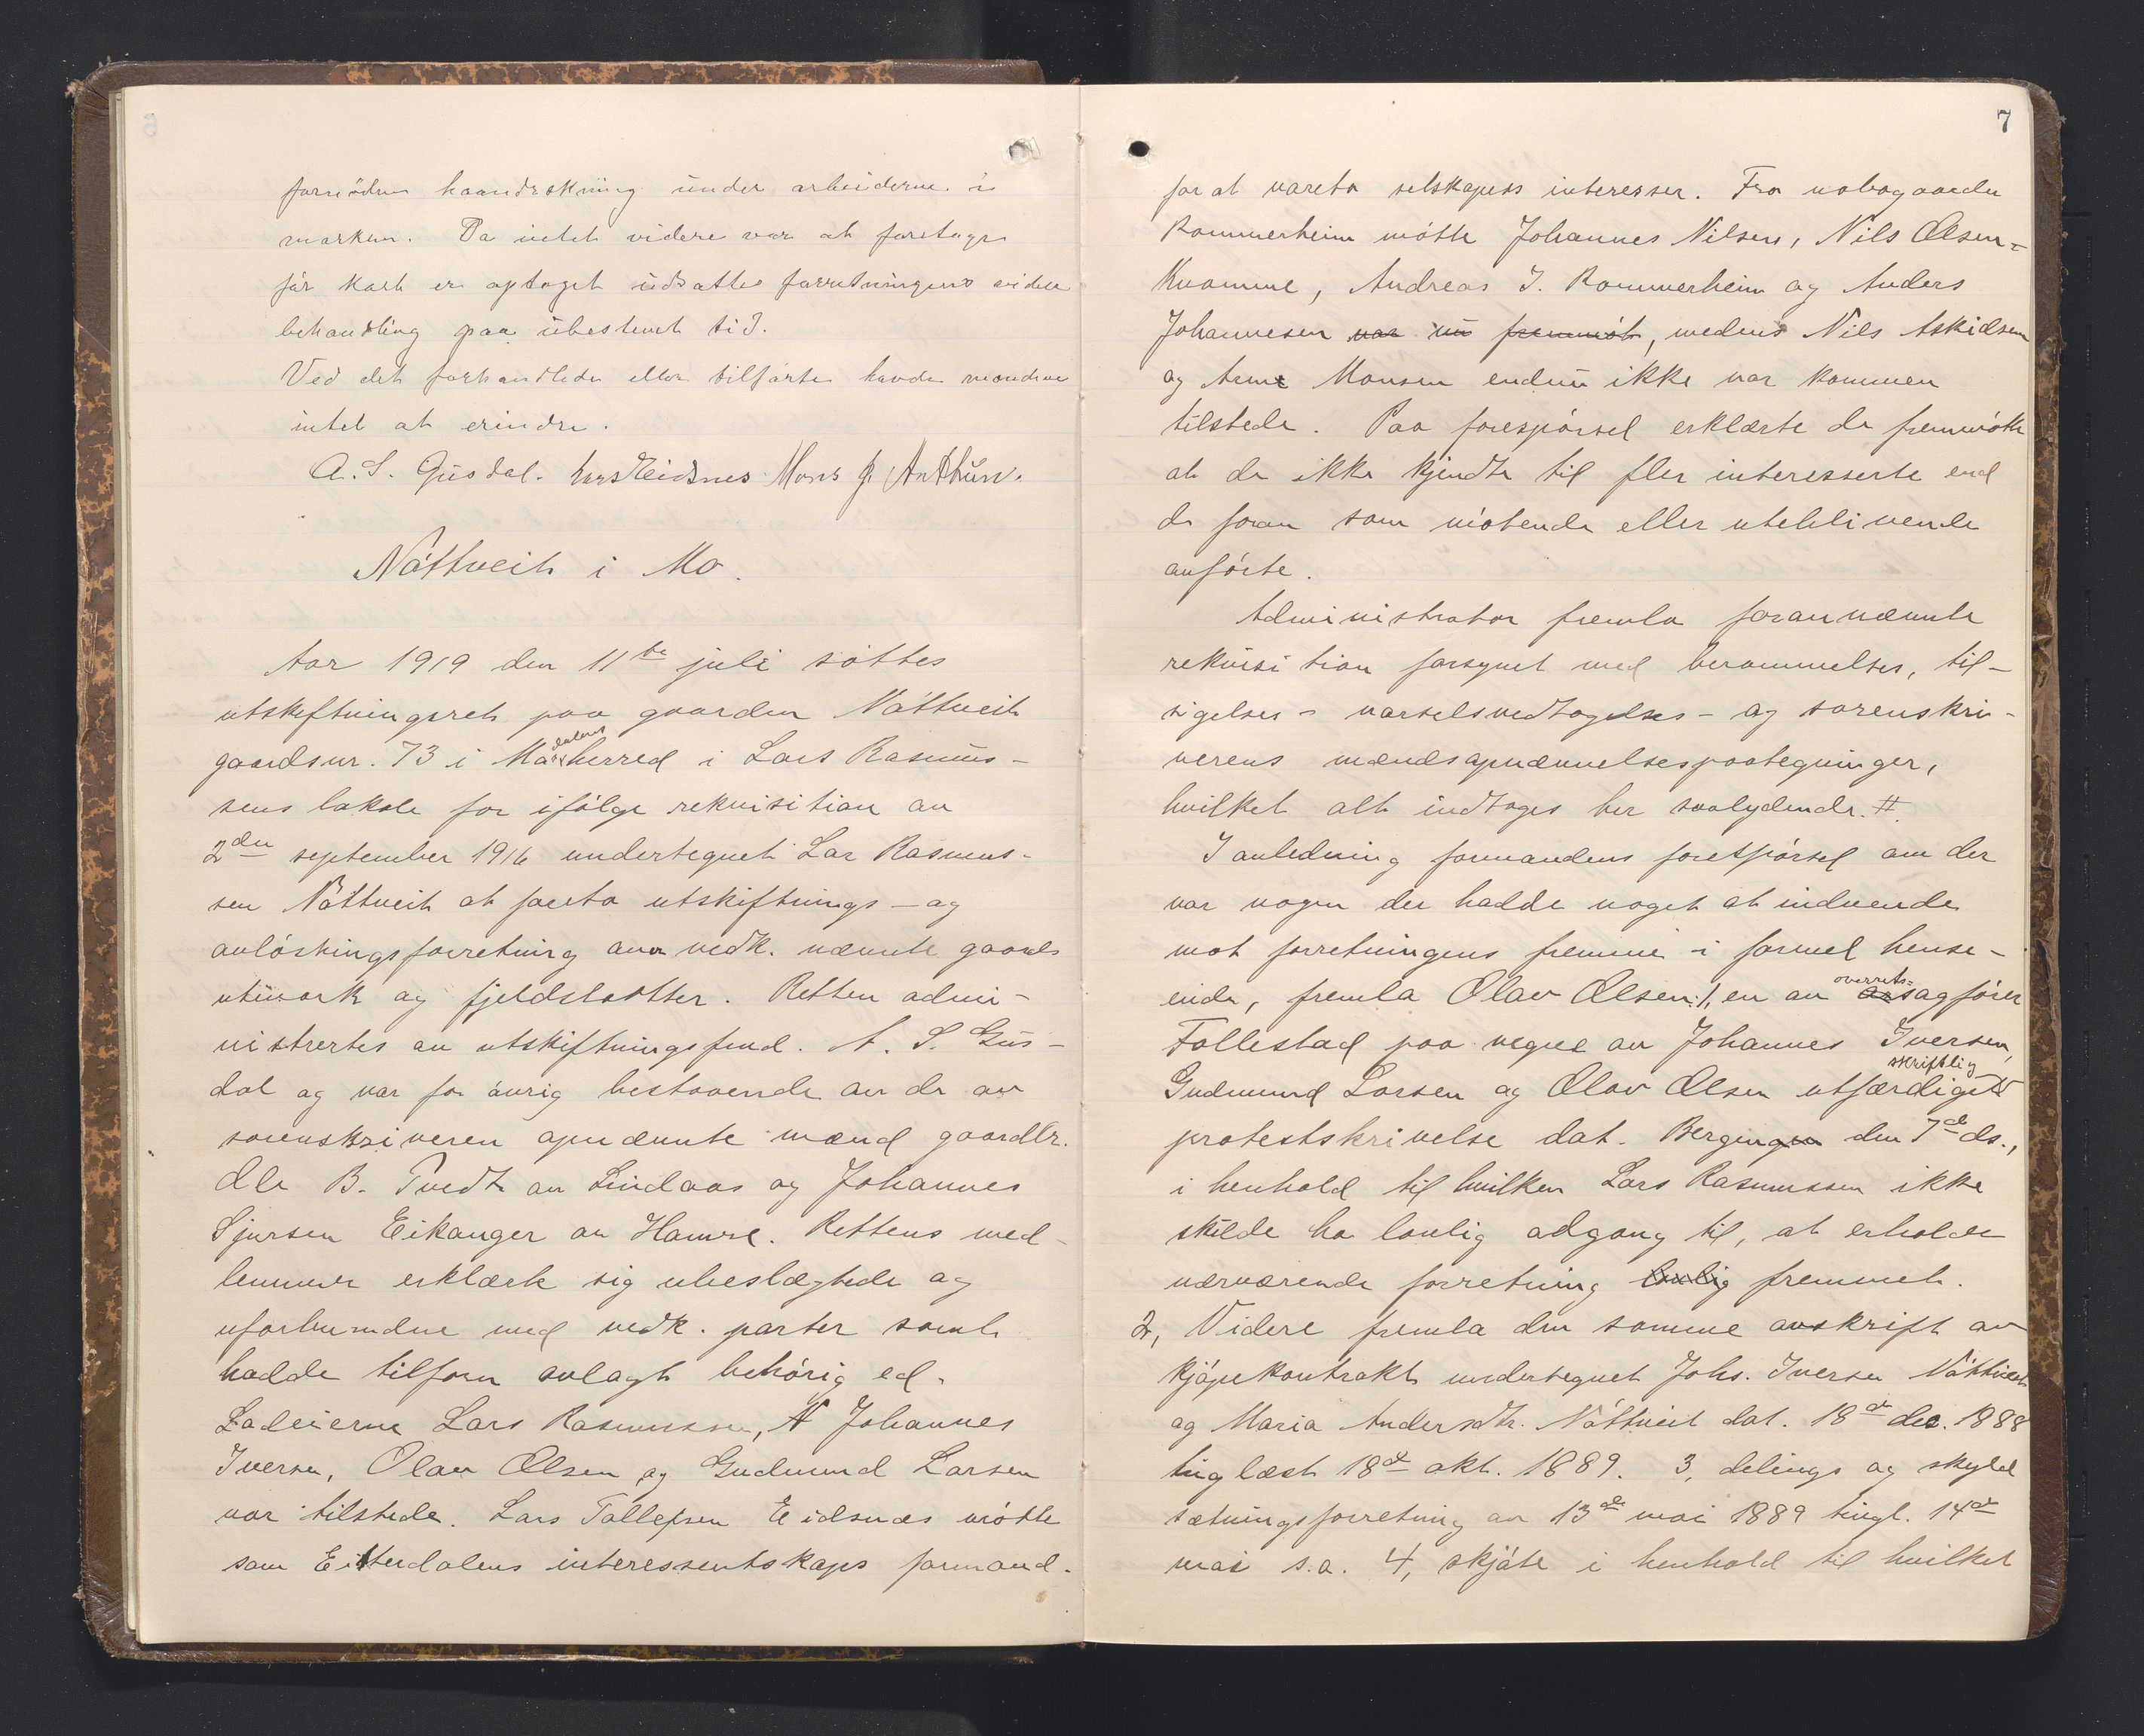 fornødne haandrækning under arbeiderne i
marken. Da intet videre var at foretage
før kart er optaget utsattes forretningens videre
behandling paa ubestemt tid.
Ved det forhandlede eller tilførte havde mændene
intet at erindre.
A. S. Gusdal. Lars Eidsnes Mons J. Arthun.
Nåttveit i Mo.
Aar 1919 den 11te juli sattes
utskiftningsret paa gaarden Nåttveit
gaardsnr. 73 i Modalens herred i Lars Rasmus-
sens lokale for ifølge rekvisition av
2den september 1916 undertegnet Lar Rasmus-
sen Nåttveit at foreta utskiftnings- og
avløsningsforretning over vedk. nævnte gaards
utmark og fjeldslaatter. Retten admi-
nistrertes av utskiftningsfmd. A. S. Gus-
dal og var for øvrig bestaaende av de av
sorenskriveren opnævnte mænd gaardbr.
Ole B. Tvedt av Lindaas og Johannes
Sjursen Eikanger av Hamre. Rettens med-
lemmer erklærte sig ubeslægtede og
uforbundne med vedk. parter samt
hadde tilforn avlagt behørig ed.
Lodeierne Lars Rasmussen, Johannes
Iversen, Olav Olsen og Gudmund Larsen
var tilstede. Lars Tollefsen Eidsnes møtte
som Eitterdalens interessentskaps formand
7
for at vareta selskapets interesser. Fra nabogaarden
Rommerheim møtte Johannes Nilsen, Nils Olsen-
Kvamme, Andreas J. Rommerheim og Anders
Johannesen var nu fremmøt, medens Nils Askidsen
og Arne Monsen endnu ikke var kommen
tilstede. Paa forespørsel erklærte de fremmøtte
at de ikke kjendte til fler interesserte end
de foran som møtende eller uteblivende
anførte.
Administrator fremla forannævnte
rekvisition forsynet med berammelses, til-
sigelses- varselsvedtagelses- og sorenskri-
verens mændsopnævnelsespaategninger,
hvilket alt indtages her saalydende. #
I anledning formandens forespørsel om der
var nogen der hadde noget at indvende
mot forretningens fremme i formel hense-
ende, fremla Olav Olsen: 1, en av overrets-sagfører
Follestad paa vegne av Johannes Iversen,
Gudmund Larsen og Olav Olsen utfærdiget skriftlig
protestskrivelse dat. Bergen den 7de ds.,
i henhold til hvilken Lars Rasmussen ikke
skulde ha lovlig adgang til, at erholde
nærværende forretning lovlig fremmet.
2, Videre fremla den samme avskrift av
kjøpekontrakt undertegnet Johs. Iversen Nåttveit
og Maria Andersdtr. Nåttveit dat. 18de des. 1888
tinglæst 18de okt. 1889. 3, delings og skyld
sætningsforretning av 13de mai 1889 tingl. 14de
mai s.a. 4, skjøte i henhold til hvilket